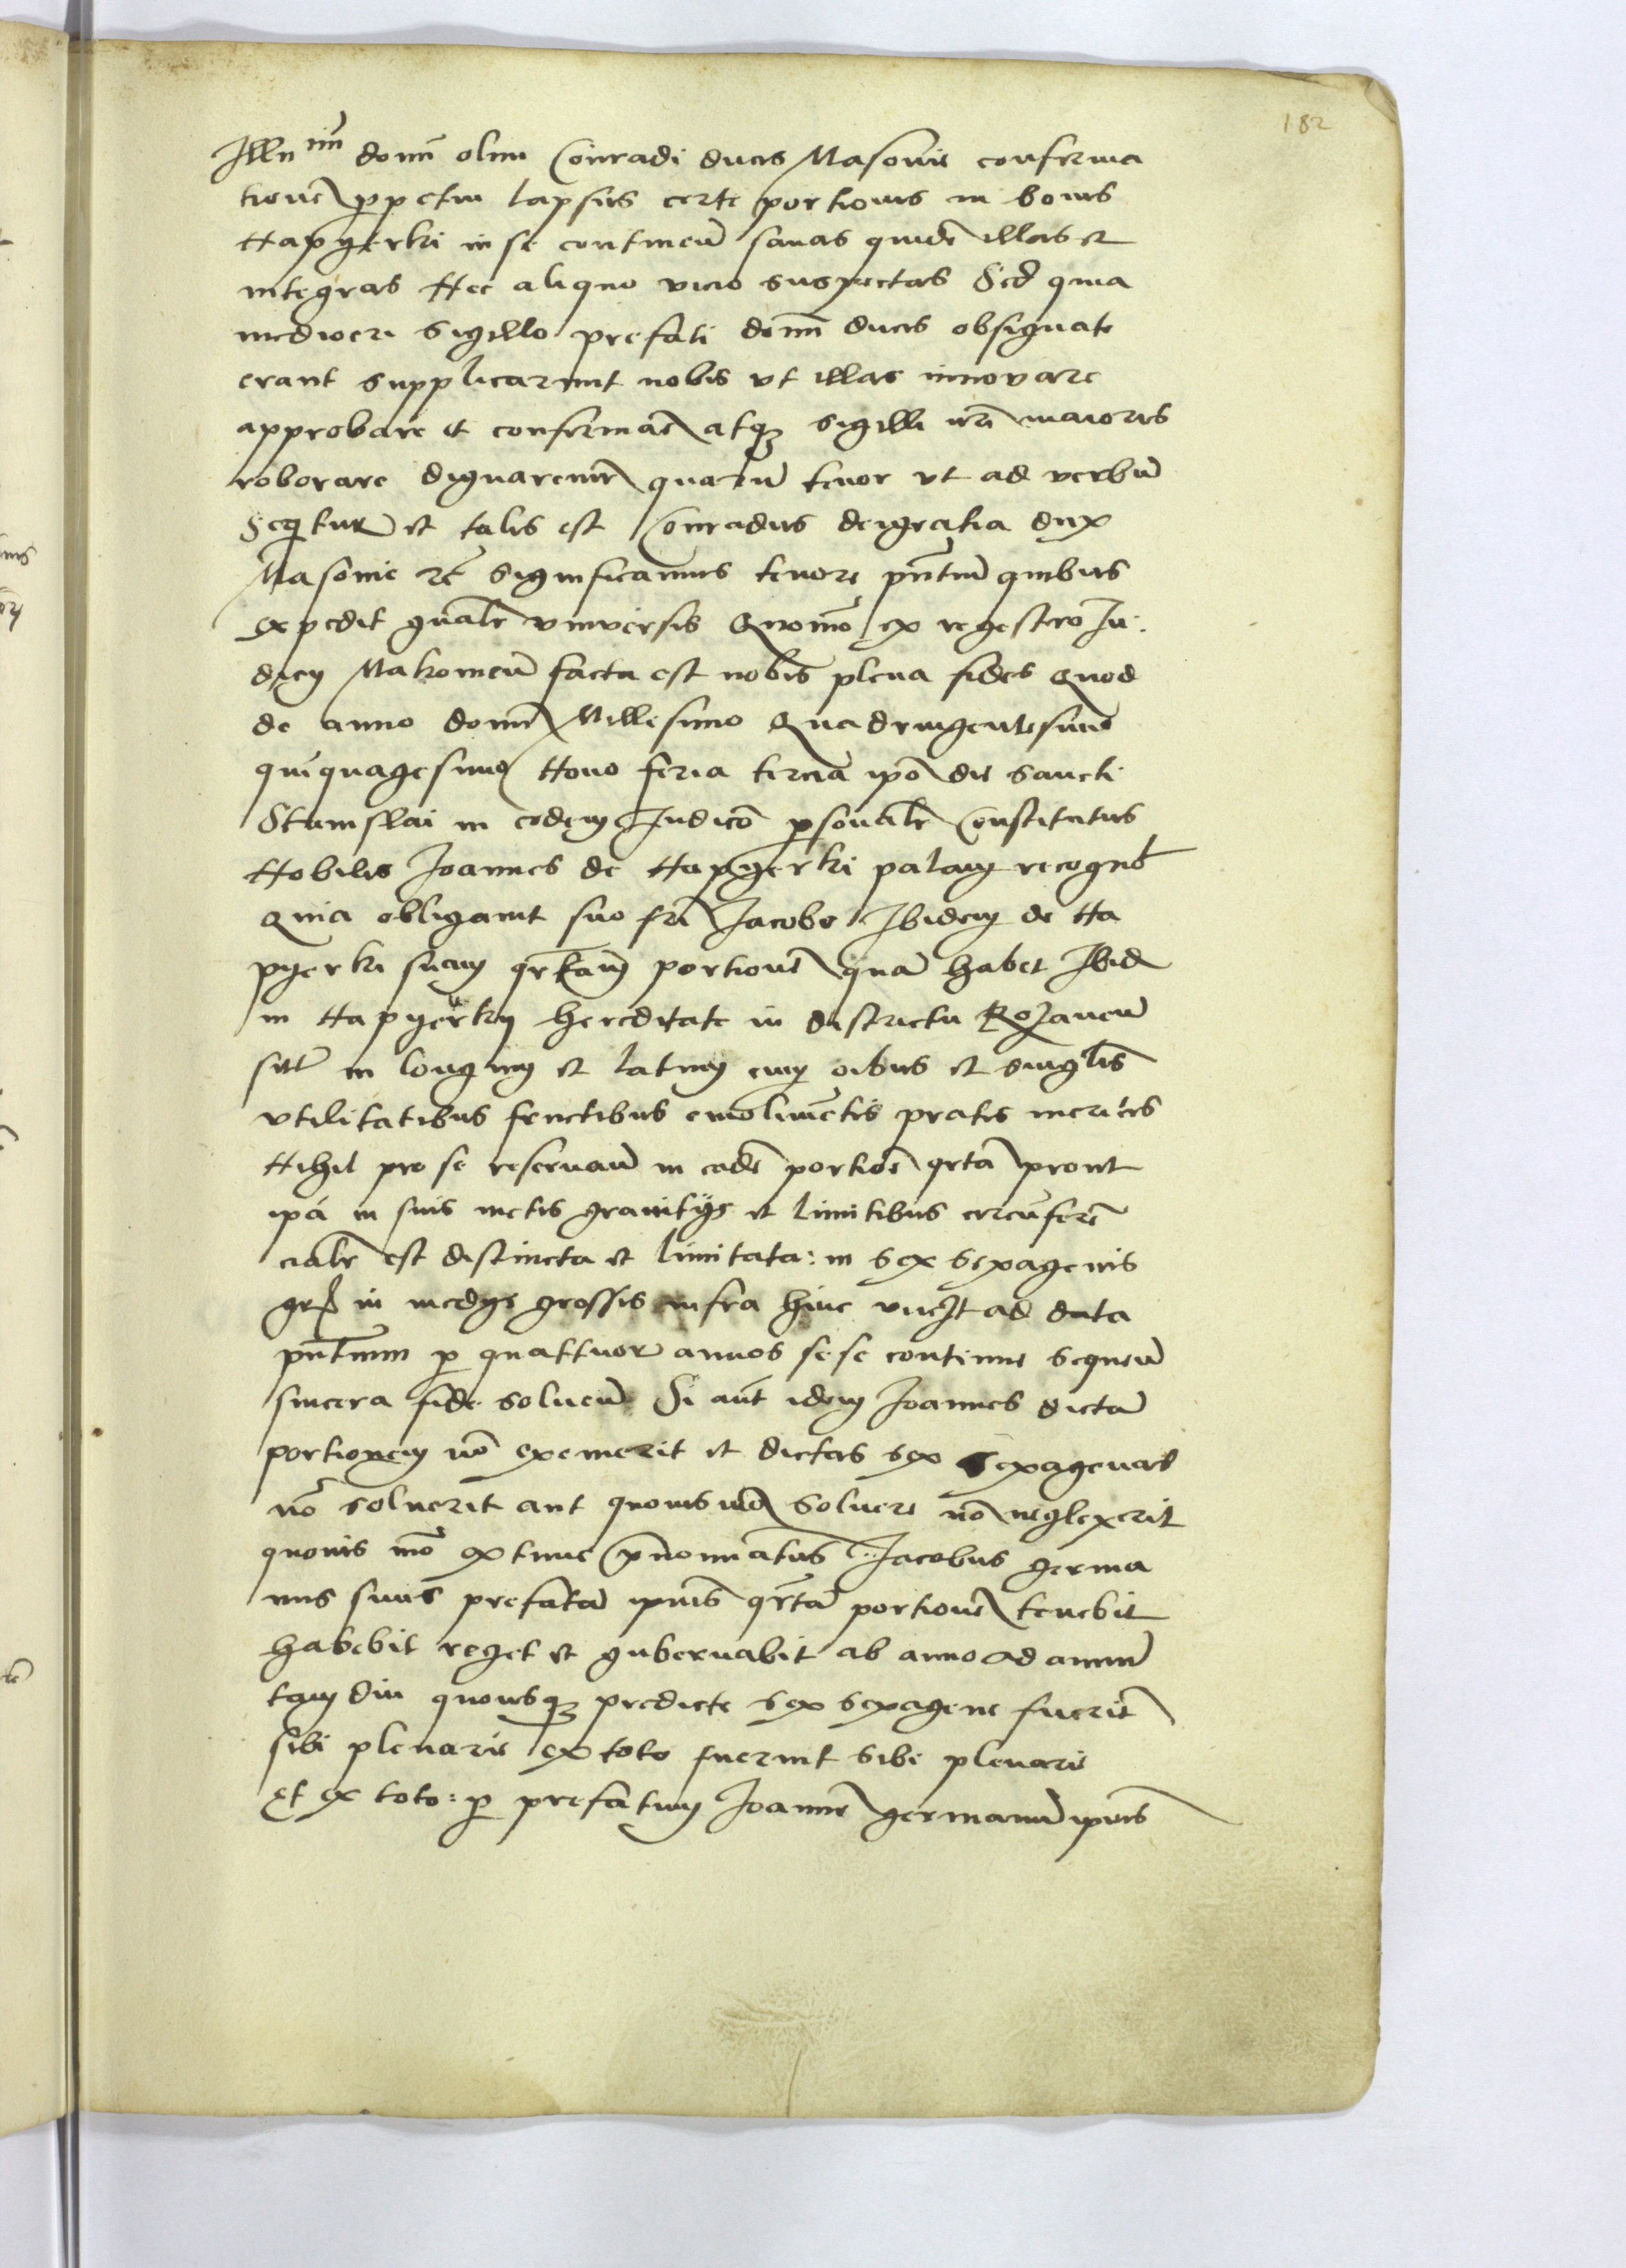 182
Illuᵐⁱ domī olim Conradi ducis Masouie confirma
tionē ꝑpetui lapsus certe portionis in bonis
Napyerki in se continen̄ sanas quidē illas et
integras Nec aliquo vicio suspectas Sed quia
mediocri sigillo prefati domī ducis obsignate
erant supplicarunt nobis vt illas innovare
approbare et confirmare atqꝫ sigilli nr̄i maioris
roborare dignaremur quarū tenor vt ad verbū
Seqͥtur et talis est Conradus dei gratia dux
Masouie ꝛc̄ significamus tenore pn̄tiū quibus
expedit gn̄alr̄ vniuersis Quomō ex regestro Iu-
dicy Makouien̄ facta est nobis plena fides Quod
de anno domī Millesimo Quadringentesimo
quīquagesimo Nono feria tercia ipō die sancti
Stanislai in eodem Iudicō ꝑsonalr̄ Constitutus
Nobilis Joannes de Napyerki palam recognoᵗ
Quia obligauit suo frī Jacobo Ibidem de Na
pyerki suam qrtam̄ portionē quā habet Ibid
in Napyerky hereditate in districtu Rozanen̄
sitā in longum et latum cum oībus et singlīs
vtilitatibus fructibus emolimētis pratis mericis
Nihil pro se reseruan̄ in eadē portiōe qrtā prout
ipā in suis metis granitijs et limitibus circūferē
cialr̄ est distincta et limitata: in sex sexagenis
gross in medys grossis infra hinc vnc̄ ad data
pn̄tium ꝑ quattuor annos sese continue sequen̄
sincera fide soluen̄ Si aūt idem Joannes dictā
portionem nō exemerit et dictas sex sexagenas
nō soluerit aut quouismō Soluere nō neglexerit
quouis mō extunc p̄nominatus Jacobus germa
nus suus prefatā ipīus qrtā portionē tenebit
habebit reget et gubernabit ab anno ad annū
tam diu quousqꝫ predicte sex sexagene fuerīt
sibi plenarie ex toto fuerint sibi plenarie
et ex toto: ꝑ prefatum Joannē germanū ipīus